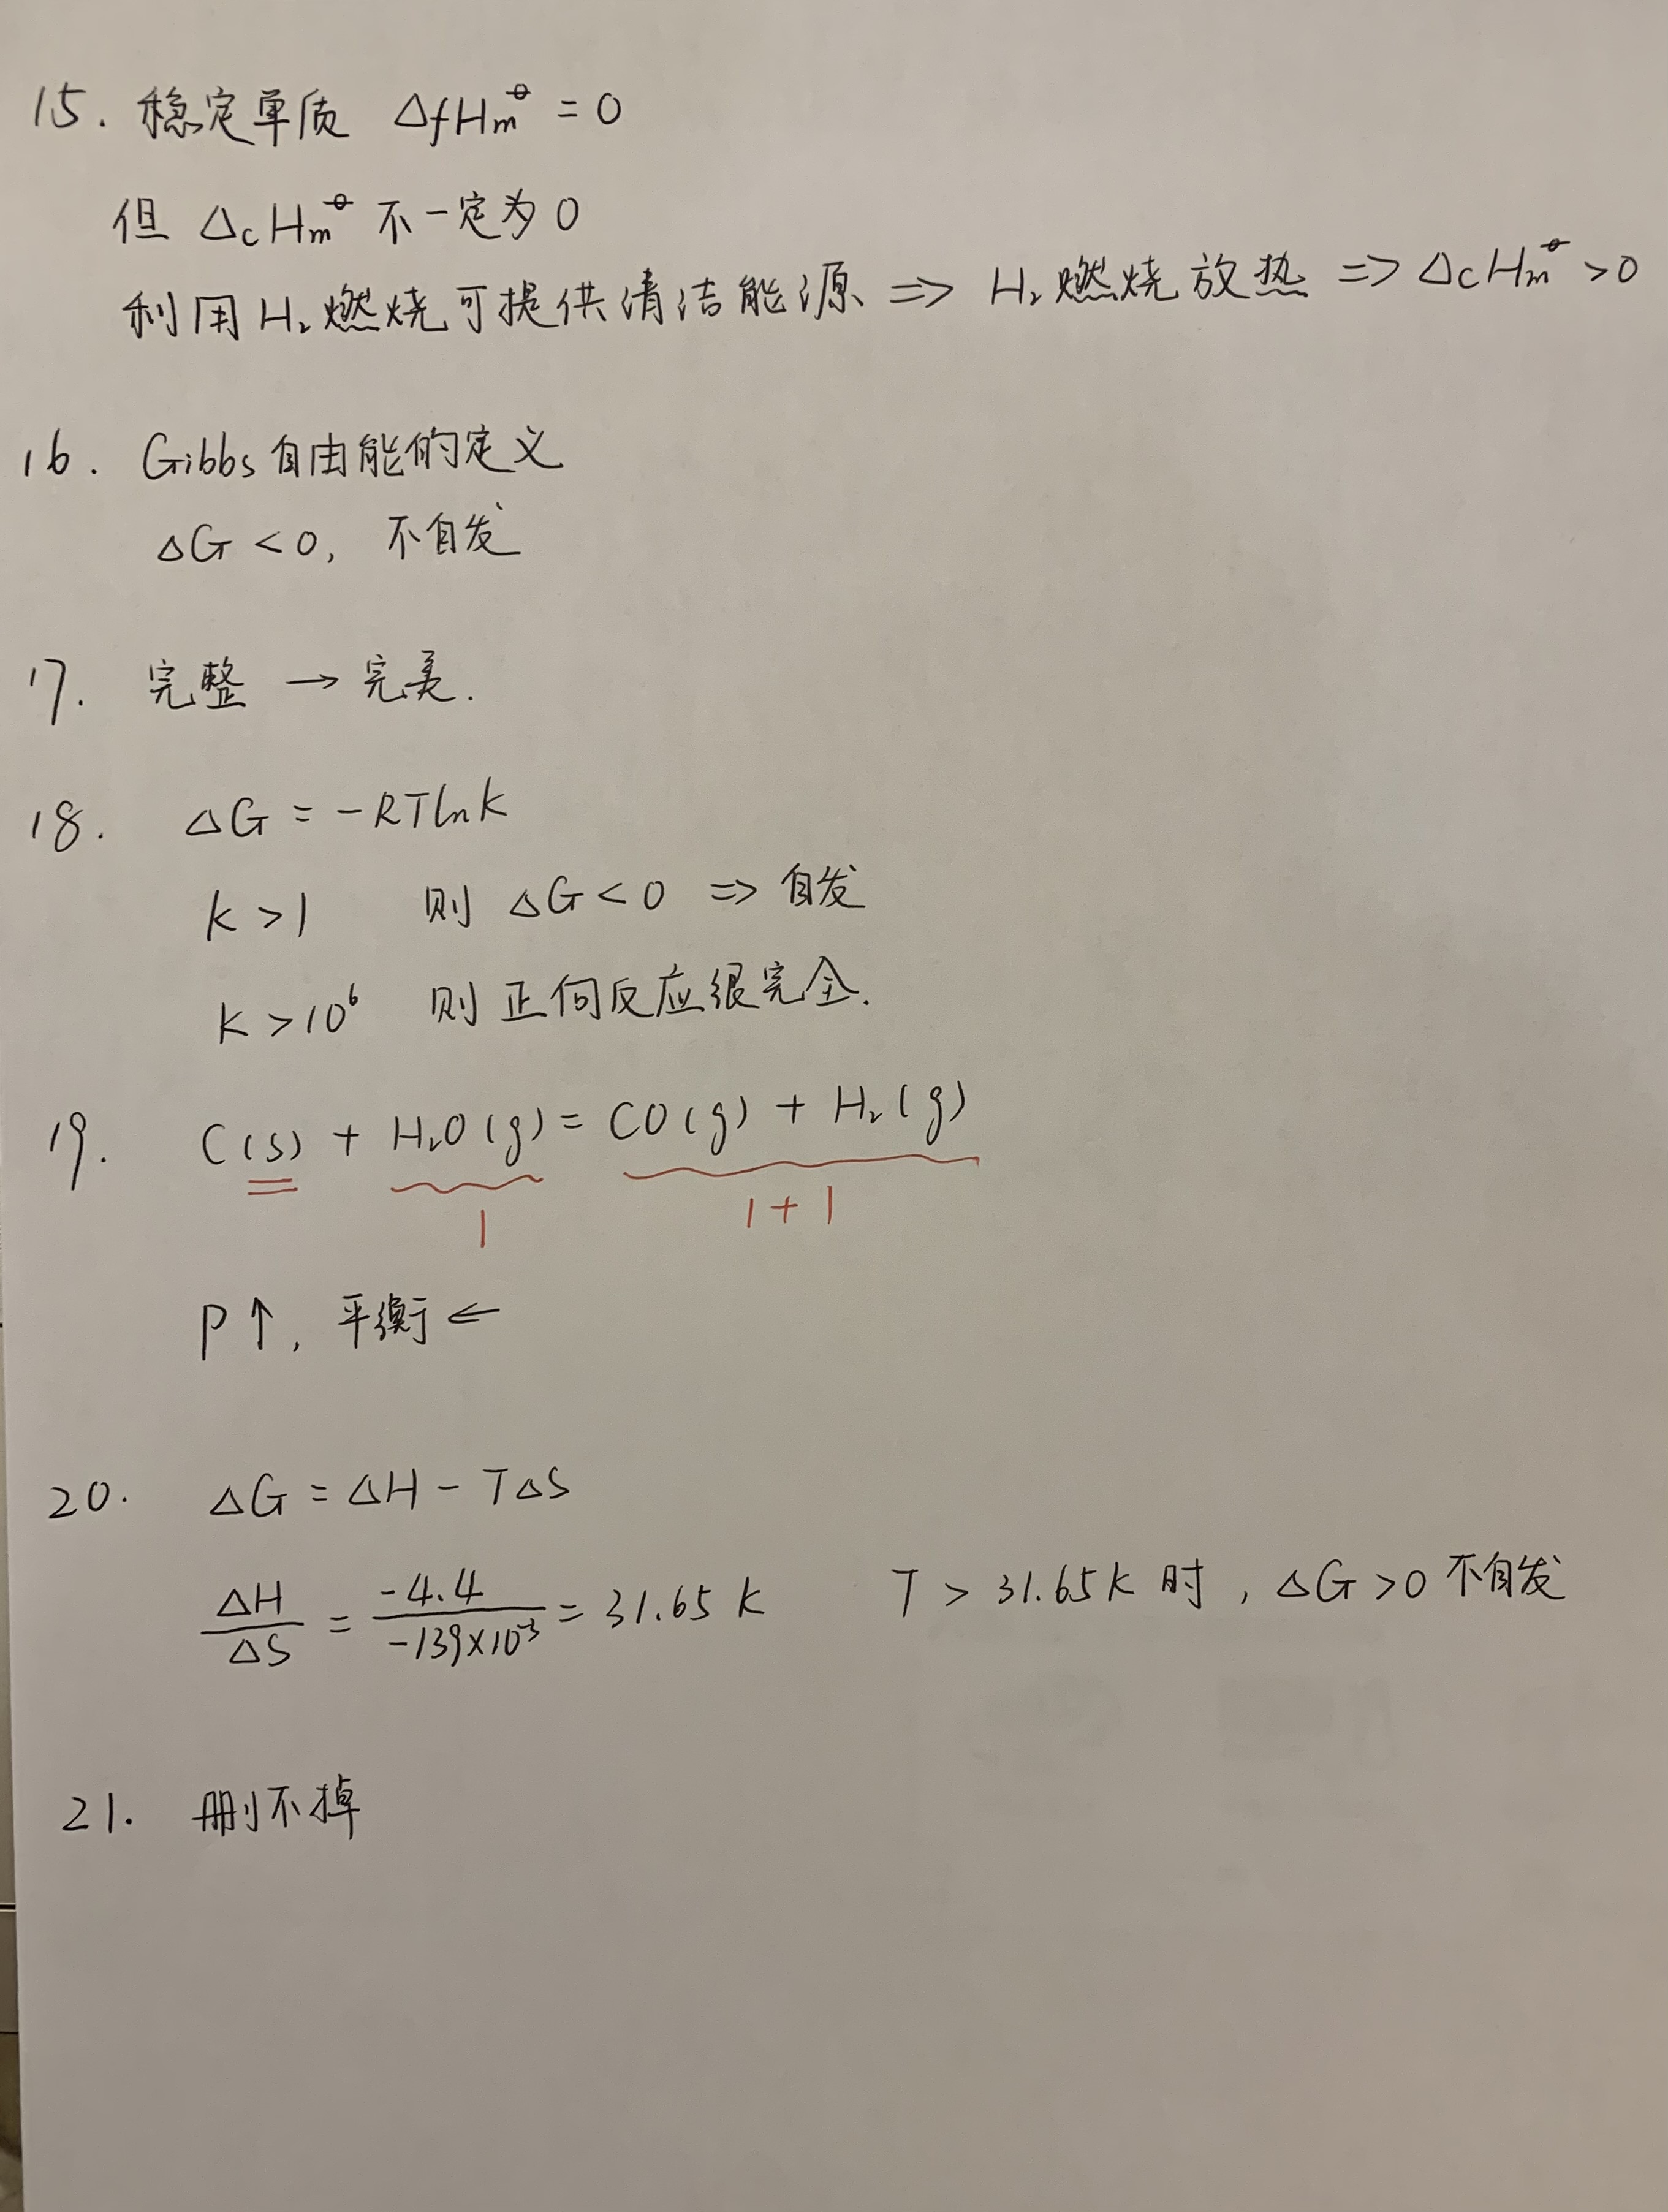 15. 稳定单质 ΔfHm⊖ = 0
但 ΔcHm⊖ 不一定为 0
利用 H₂ 燃烧可提供清洁能源 ⇒ H₂ 燃烧放热 ⇒ ΔcHm⊖ > 0
16. Gibbs 自由能的定义
ΔG < 0, 不自发
17. 完整 → 完美.
18. ΔG = -RTlnK
K > 1 则 ΔG < 0 ⇒ 自发
K > 10⁶ 则正向反应很完全.
19. C(s) + H₂O(g) = CO(g) + H₂(g)
1 1+1
P↑, 平衡 ←
20. ΔG = ΔH - TΔS
ΔH/ΔS = -4.4/-139×10⁻³ = 31.65 K T > 31.65K 时, ΔG > 0 不自发
21. 删不掉